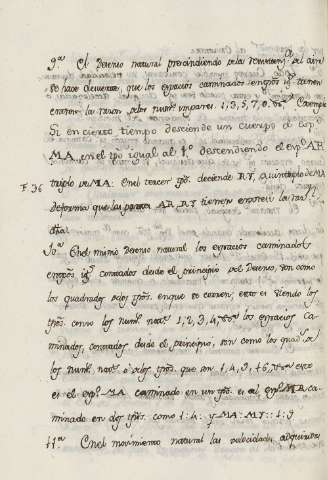 9.ª El Descenso natural prescindiendo dela resistencia del aire
se hace de suerte, que los espacios caminados en tpos. ig.s tienen
entre si la razon delos num.s impares 1, 3, 5, 7, 9. &.ª exemplo
Si en cierto tiempo desciende un cuerpo el esp.º
MA, en el tpo igual al 1.º descendiendo el esp.º AR
F. 36 triplo de MA. En el tercer tpo. deciende RY, quintuplo de MA
de forma que las AR, RY tienen entre si la razon
dha.
10.ª En el mismo Descenso natural los espacios caminados
en tpos. ig.s contados desde el principio del Descenso, son como
los quadrados delos tpos. en que se corren; esto es siendo los
tpos. como los num.s nat.s 1, 2, 3, 4, &.ª los espacios ca
minados, contados desde el principio, son como los quad.s de
los num.s nat.s o delos tpos. que son 1, 4, 9, 16, &.ª esto
es el esp.º MA caminado en un tpo. es al esp.º MR ca
minado en dos tpos. como 1: 4: y MA: MY:: 1: 9
11.ª En el movimiento natural las velocidades adquiridas